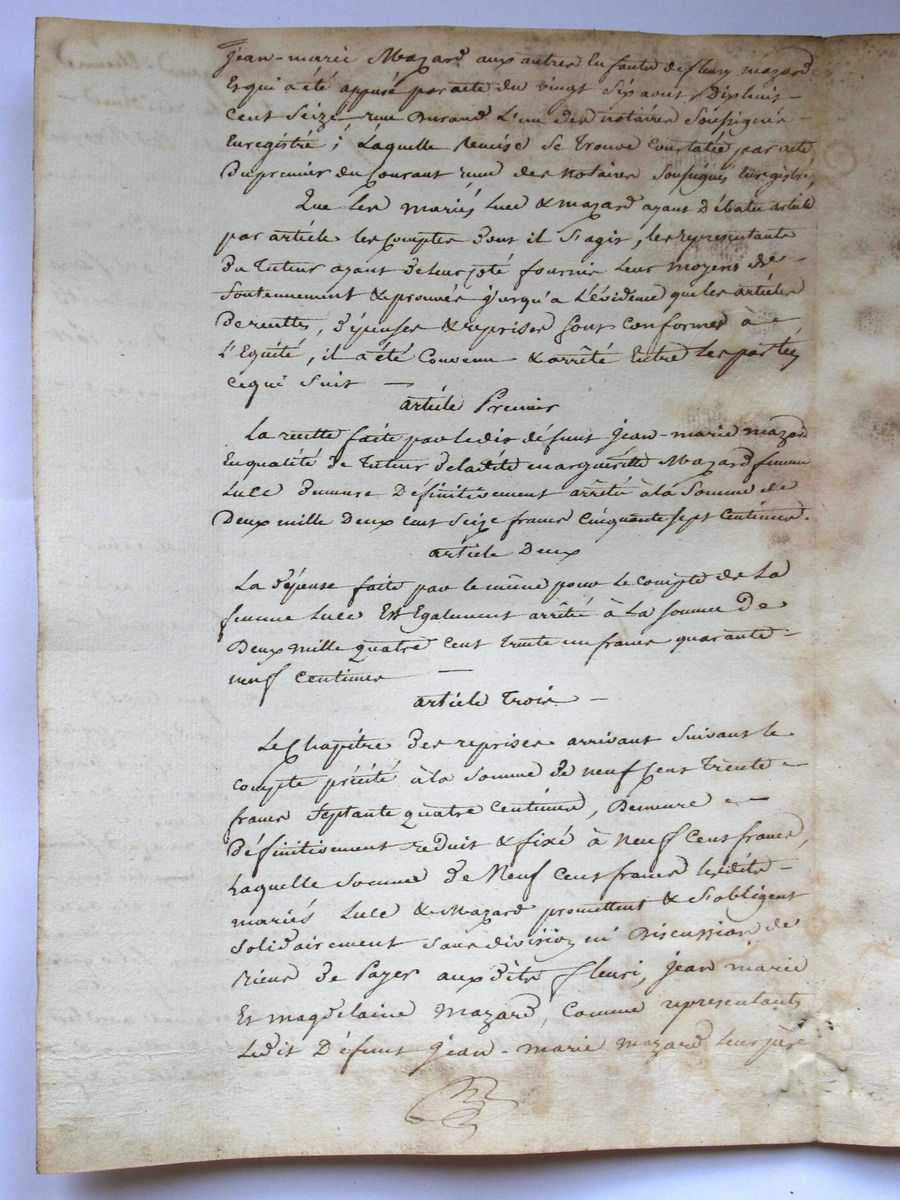 Jean-marie Mazard aux autres Enfants de fleury mazard
Et qui a été apposé par acte du vingt Six aout Dixhuit-
Cent Seize reçu Durand L'un des notaires Soussignés
Enregistré; Laquelle Remise Se Trouve Constatée par acte
Du premier du Courant reçu des Notaires Soussignés Enregistré,
Que Les mariés Luce & mazard ayant Débatu article
par article les Comptes dont il S'agit, les representants
Du Tuteur ayant de leur côté fourni Leur moyens de-
Soutennement & prouvés jusqu'a L'évidence que les articles
De recettes, dépenses & reprises Sont Conformes à
L'Equité, il a été Convenu & arrêté Entre Les parties
Ce qui Suit —
article Premier
La recette faite par Ledit défunt Jean-marie mazard
En qualité de Tuteur de ladite marguerite Mazard femme
Luce Demeure Définitivement arrêtée à la Somme de
Deux mille Deux cent Seize francs Cinquante Sept Centimes.
article Deux
La dépense faite par le même pour Le Compte de La
femme Luce Est Egalement arrêtée à La Somme De
Deux mille quatre Cent Trente un francs quarante-
neuf Centimes —
article Trois —
Le Chapitre des reprises arrivant Suivant le
Compte précité à la Somme de neuf Cent Trente-
francs Septante quatre Centimes, Demeure —
Définitivement réduit & fixé à Neuf Cent francs,
Laquelle Somme de Neuf Cent francs Lesdits-
mariés Luce & Mazard promettent & S'obligent
Solidairement Sans division ni Discussion de
Biens de Payer auxdits fleuri, Jean marie
Et magdelaine Mazard, Comme representants
Ledit Défunt Jean-marie mazard Leur père